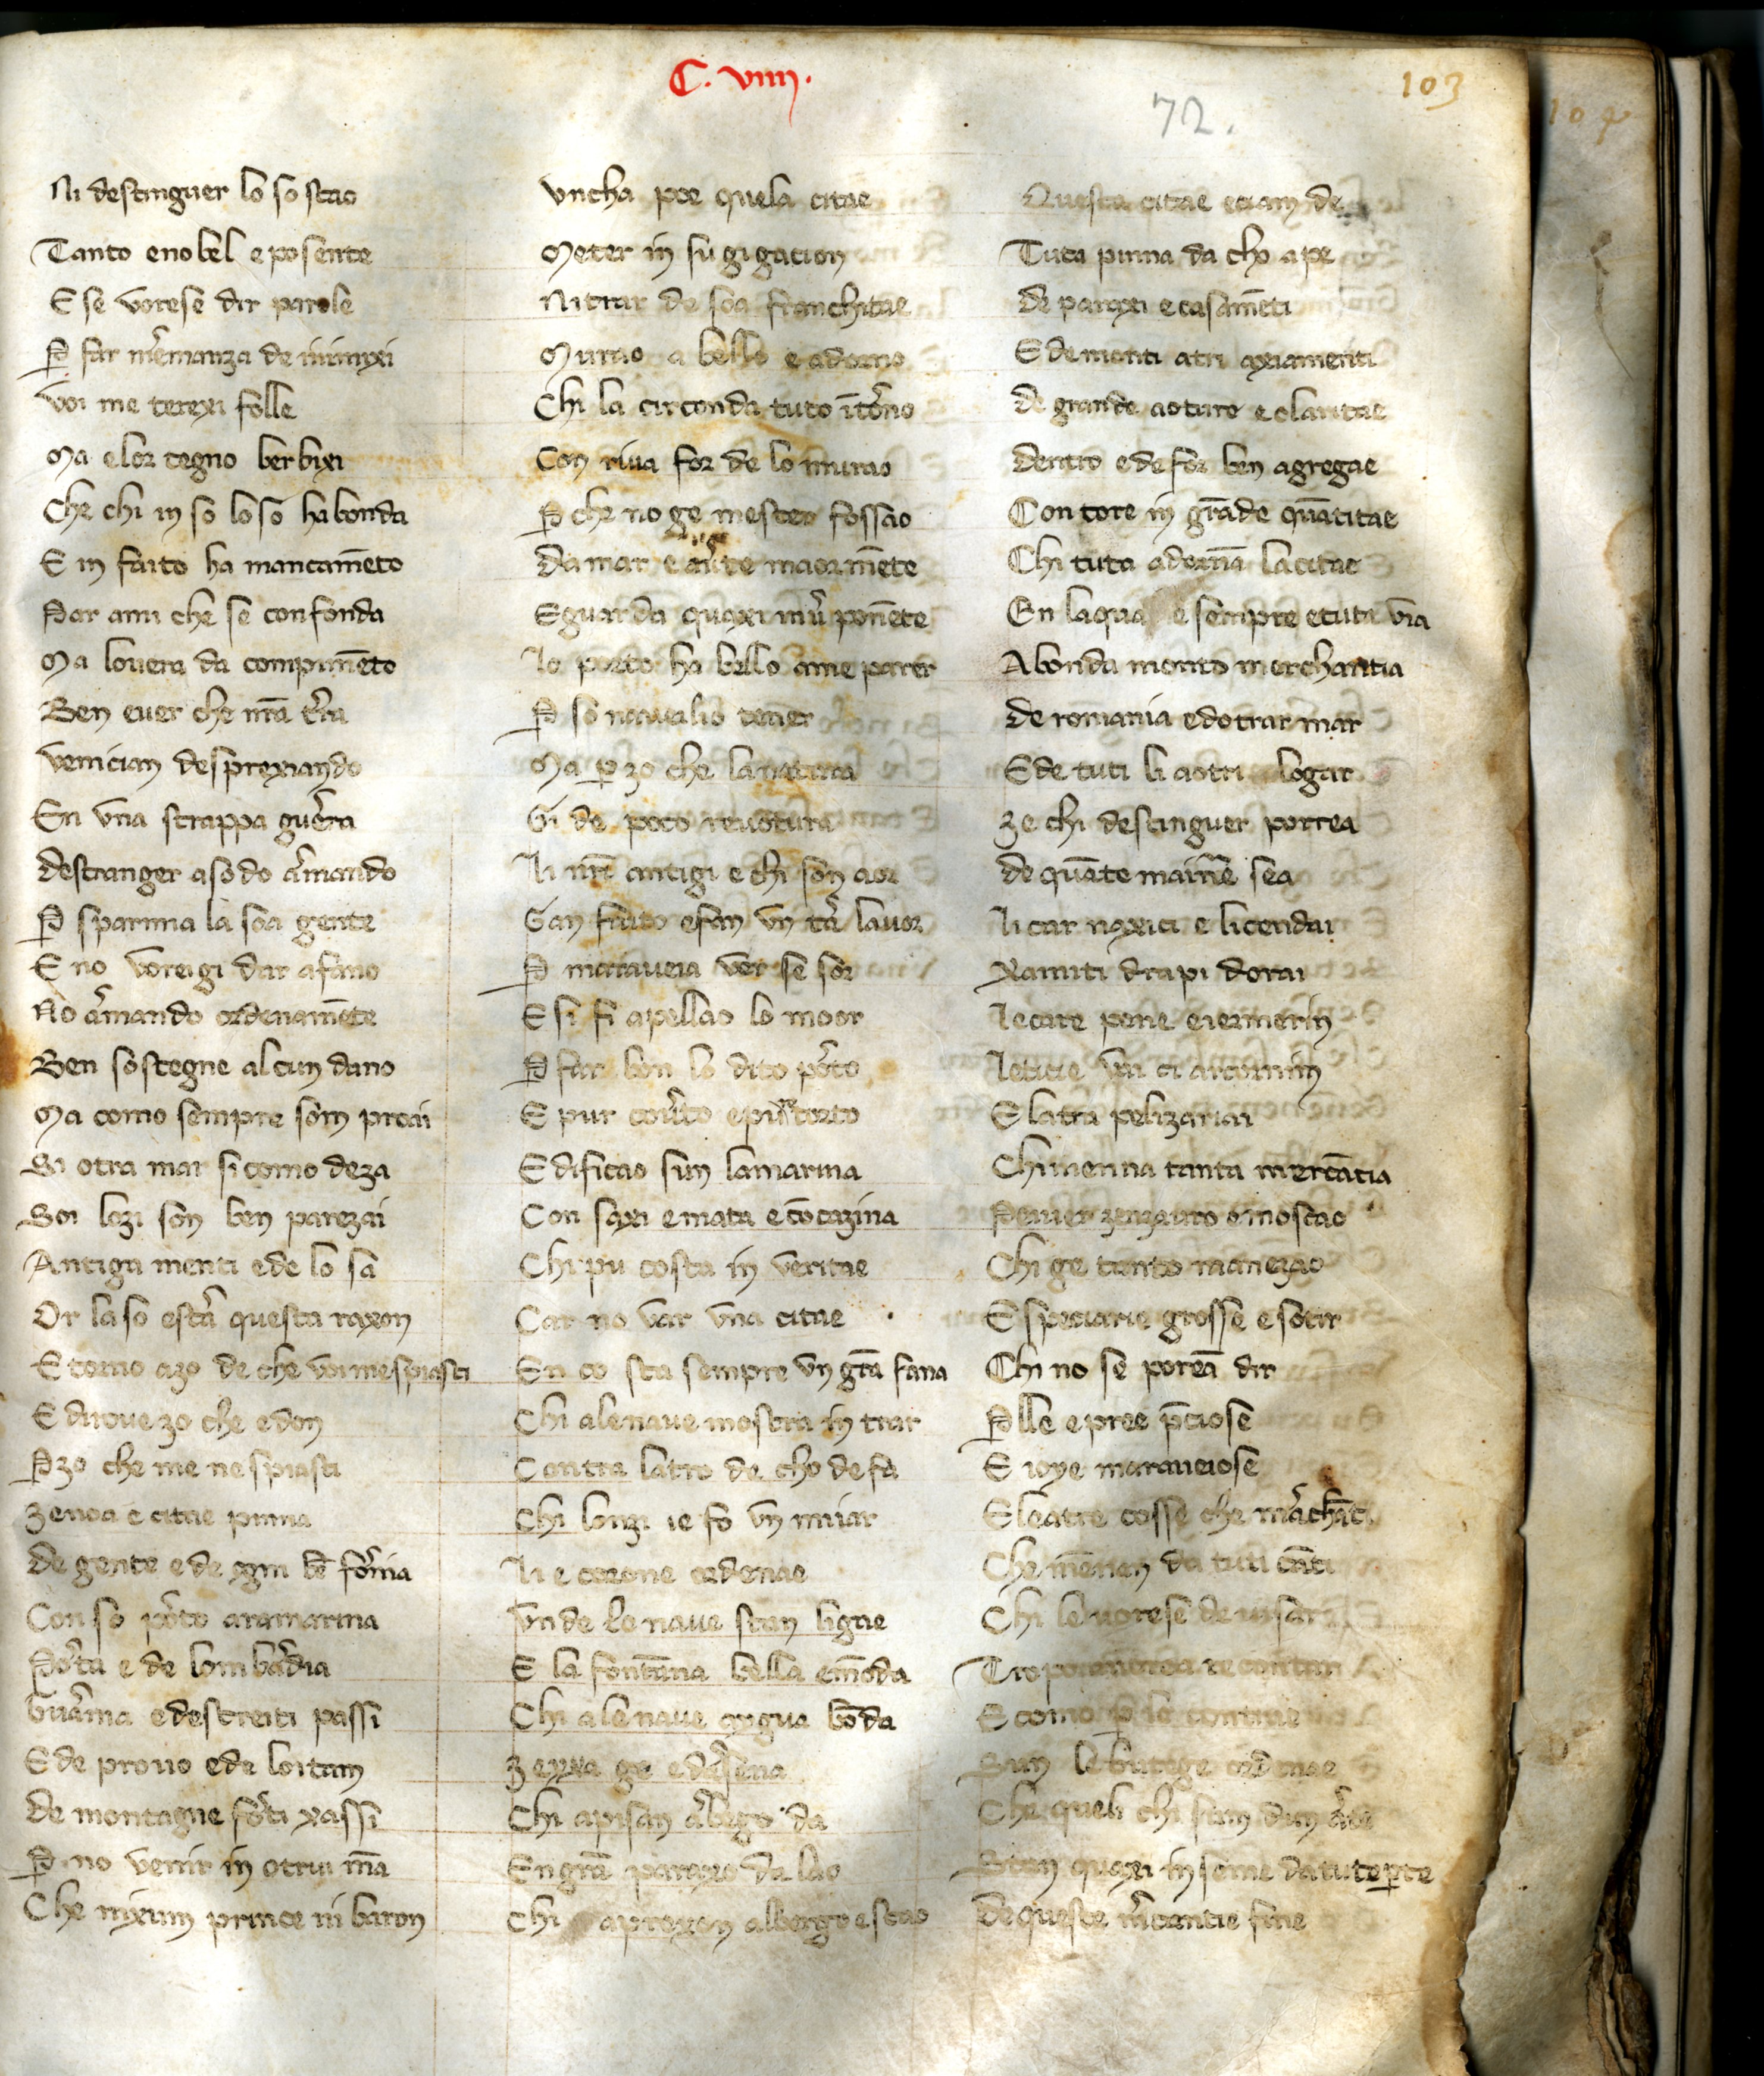 C. viiii.
72.
103
104
Ni destinguer lo so stao
Tanto e nobel e posente
E se vorese dir parole
P far nr̄emanza de inimixi
Voi me terexi folle
Ma e lor tegno berbixi
Che chi in so loso habonda
E in faito ha mancam̄eto
Par ami che se confonda
Ma lovera da compim̄eto
Ben e ver che nr̄a tr̄ra
Venician desprexiando
En vna strappa guer̄ra
Destranger a so do ar̄mando
P sparmia la soa gente
E no voreigi dar afano
No ar̄mando ordenam̄ete
Ben sostegne alcun dano
Ma como sempre som proai
Si otra mar si como deza
Soi lozi son ben parezai
Antigamenti e de lo sa
Or laso esta questa raxon
E torno azo de che voi me spiasti
E dirove zo che e don
P zo che me ne spiasti
Zenoa e citae pinna
De gente e de ogni b̄e fornia
Con so porto a ra marina
Porta e de lombardia
Guarnia e de streiti passi
E de provo e da loitam
De montagne forti xassi
P no venir in otrui m̄a
Che nixum prince ni baron
Vncha poe quela citae
Meter in sugigacion
Ni trar de soa franchitae
Murao a bello e adorno
Chi la circonda tuto ītorno
Con riva for de lo murao
P che no ge mester fossao
Da mar e aute maorm̄ete
E guarda quaxi inver pon̄ete
Lo porto ha bello a me parer
P so naveilio tener
Ma p zo che la natura
Gi de poco revotura
Li nr̄i antigi e chi son aor
Gan faito e fan vn tar̄ lavor
P maraveia ver se sor
E si fi apellao lo moor
P far bon lo dito porto
E pur couerto e piu torto
Edificao sun la marina
Con saxi e mata e cōcazina
Chi pu costa in veritae
Car no var vna citae
En co sta sempre vn gr̄a fana
Chi a le nave mostra intrar
Contra latro de cho de fa
Chi lonzi ie fo vn miiar
Li e corone ordenae
Vnde le nave stan ligae
E la font̄ana bella em̄oda
Chi a le nave aygua b̄oda
Zexia ge e darsena
Chi a pisan ar̄bego da
En gr̄a paraxo da lao
Chi a prexon albergo e stao
Questa citae eciam de
Tuta pinna da cho a pe
De paraxi e casam̄eti
E de monti atri axiamenti
De grande aoture e claritae
Dentro e de for ben agregae
Con tore in gr̄ade qūatitae
Chi tuta adorn̄a la citae
En la qua e sempre e tuta via
Abonda monto merchantia
De romania e dotrar mar
E de tuti li aotri logar
Ze chi destinguer porrea
De qūate main̄ee sea
Li car naxici e li cendai
Xamiti drapi dorai
Le care pene e i ermerin
Letitie vai ci arconim
E latra pelizariai
Chi menna tanta merc̄atia
Peiver zenzavro e moscao
Chi ge tanto manezao
E speciarie grosse e sotir
Chi no se poreā dir
P lle e pree p̄ciose
E ioye maraveiose
E le atre cosse che mr̄ach̄ati
Che m̄enen da tuti c̄ati
Chi le vorese devisar
Tropo avrea re contar
E como p le contrae
Sun le butege ordenae
Che queli chi sum dun arte
Stan quaxi inseme da tute pte
De queste mr̄cantie fine